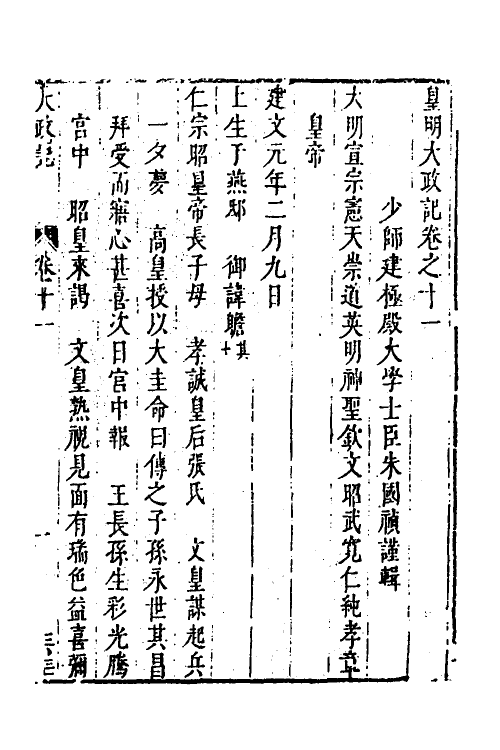 皇明大政記卷之十一
少師建極殿大學士臣朱國禎謹輯
大明宣宗憲天崇道英明神聖欽文昭武寛仁純孝章
皇帝
建文元年二月九日
上生于燕邸 御諱瞻基
仁宗昭皇帝長子母 孝誠皇后張氏 文皇謀起兵
一夕夢 高皇授以大圭命曰傳之子孫永世其昌
拜受而寤心甚喜次日宫中報 王長孫生彩光騰
宫中 昭皇來謁 文皇熟視見面有瑞色益喜彌
大政記 卷十一 一